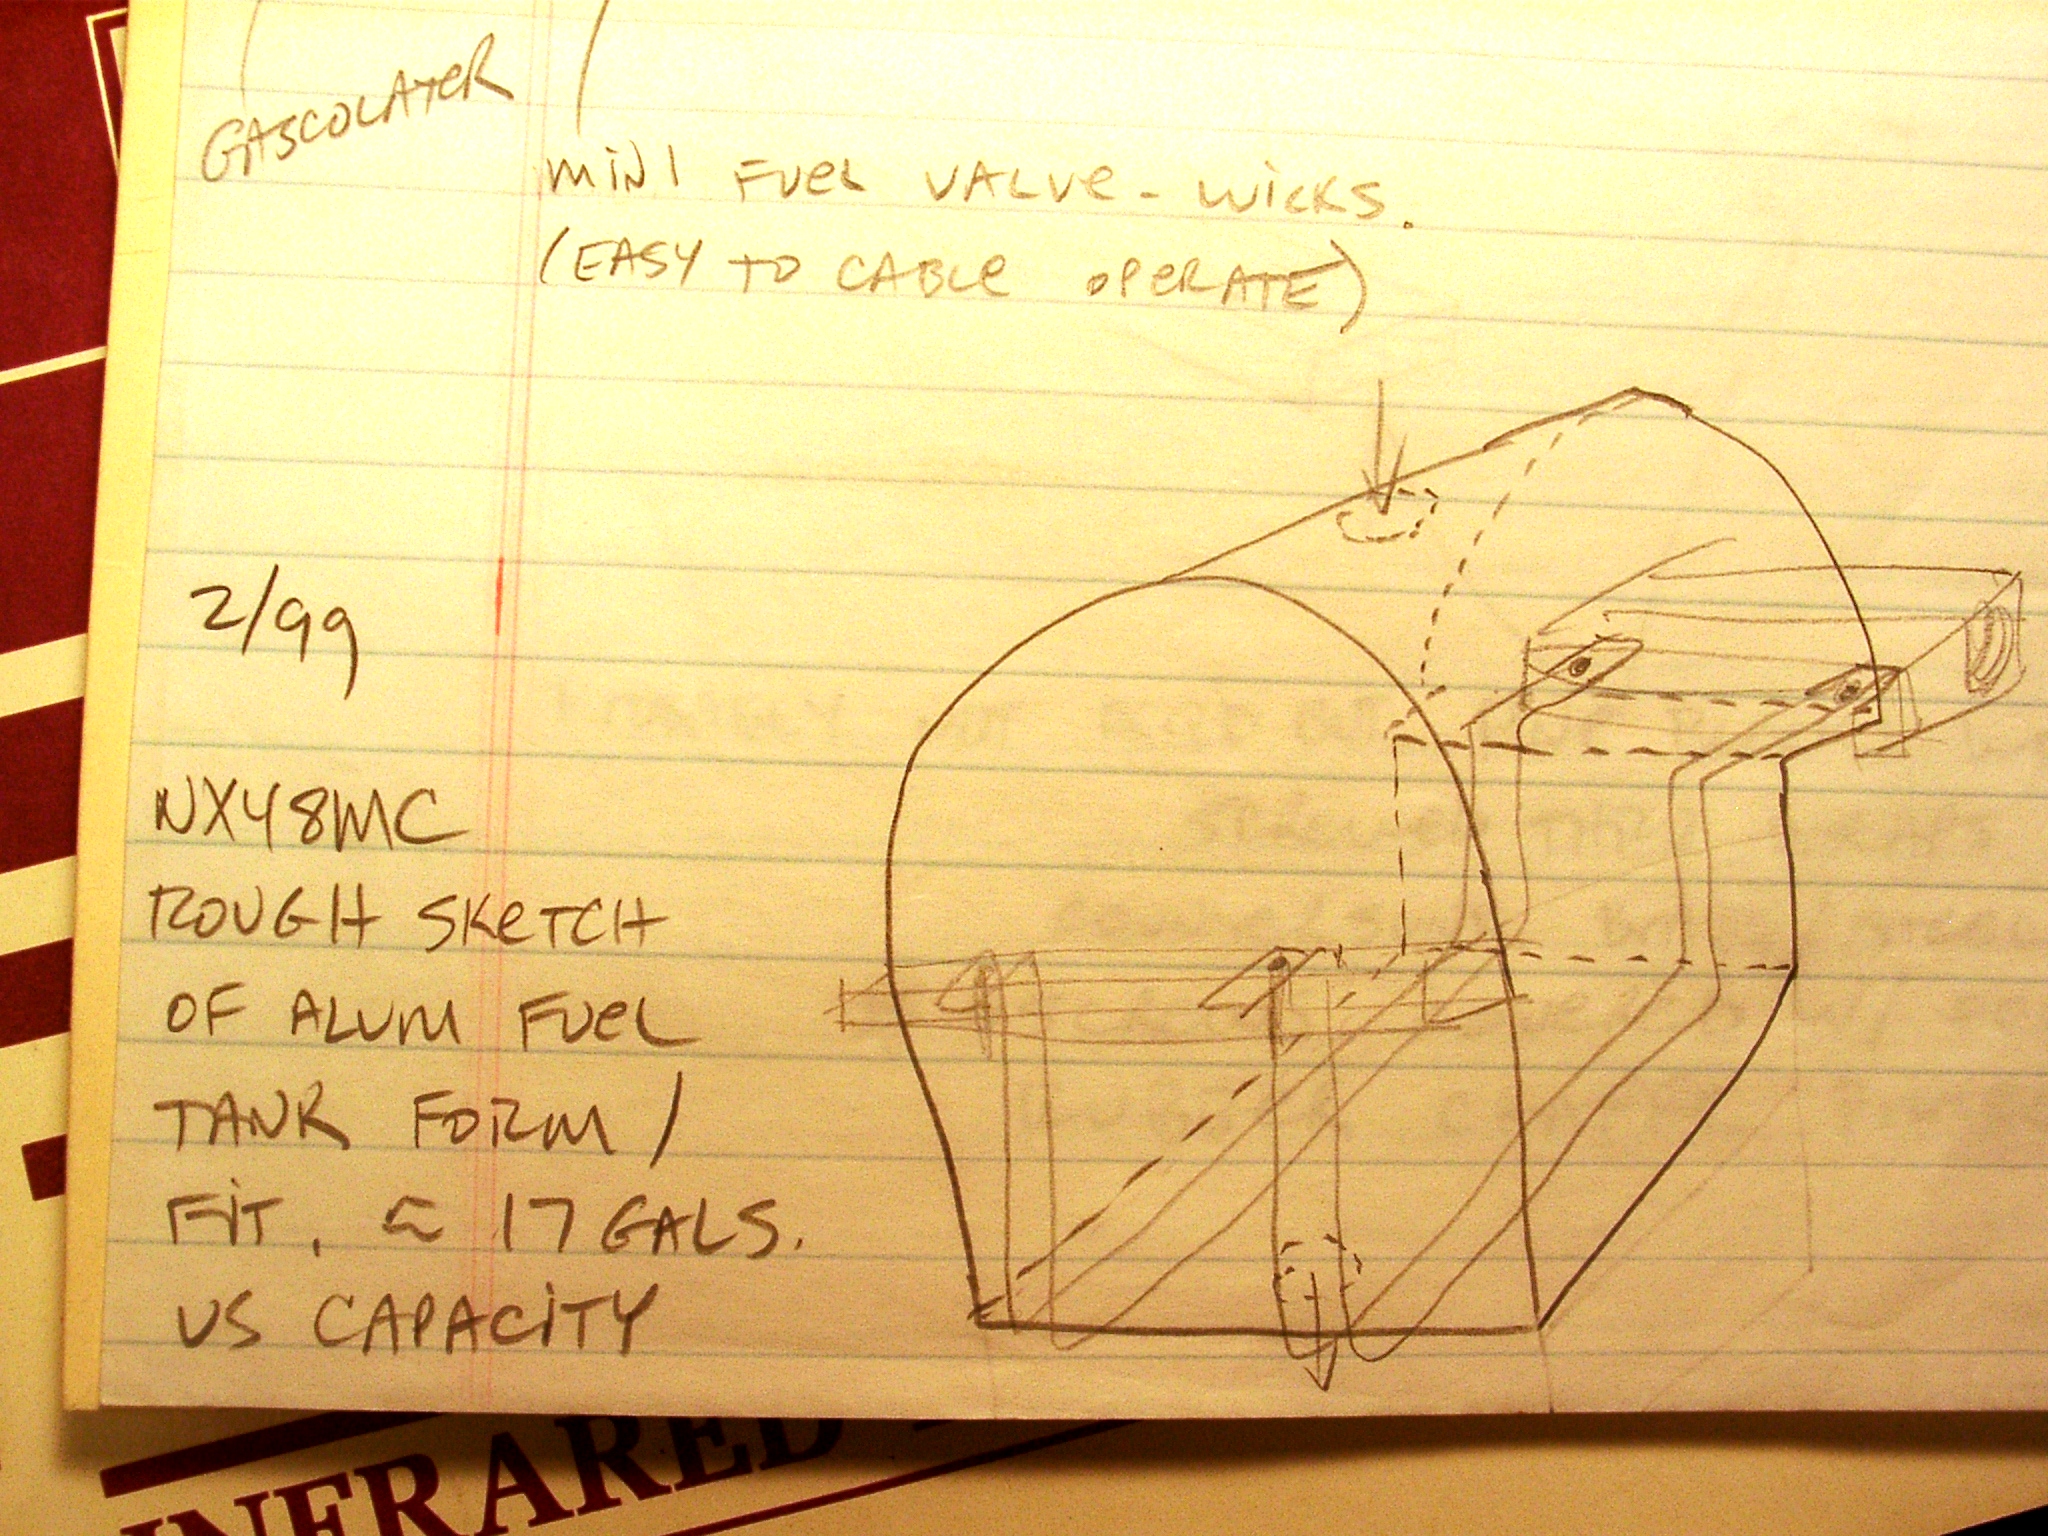 GASCOLATER
MINI FUEL VALVE - WICKS.
(EASY TO CABLE OPERATE)
2/99
NX48MC
ROUGH SKETCH
OF ALUM FUEL
TANK FORM /
FIT. ≈ 17 GALS.
US CAPACITY
INFRARED